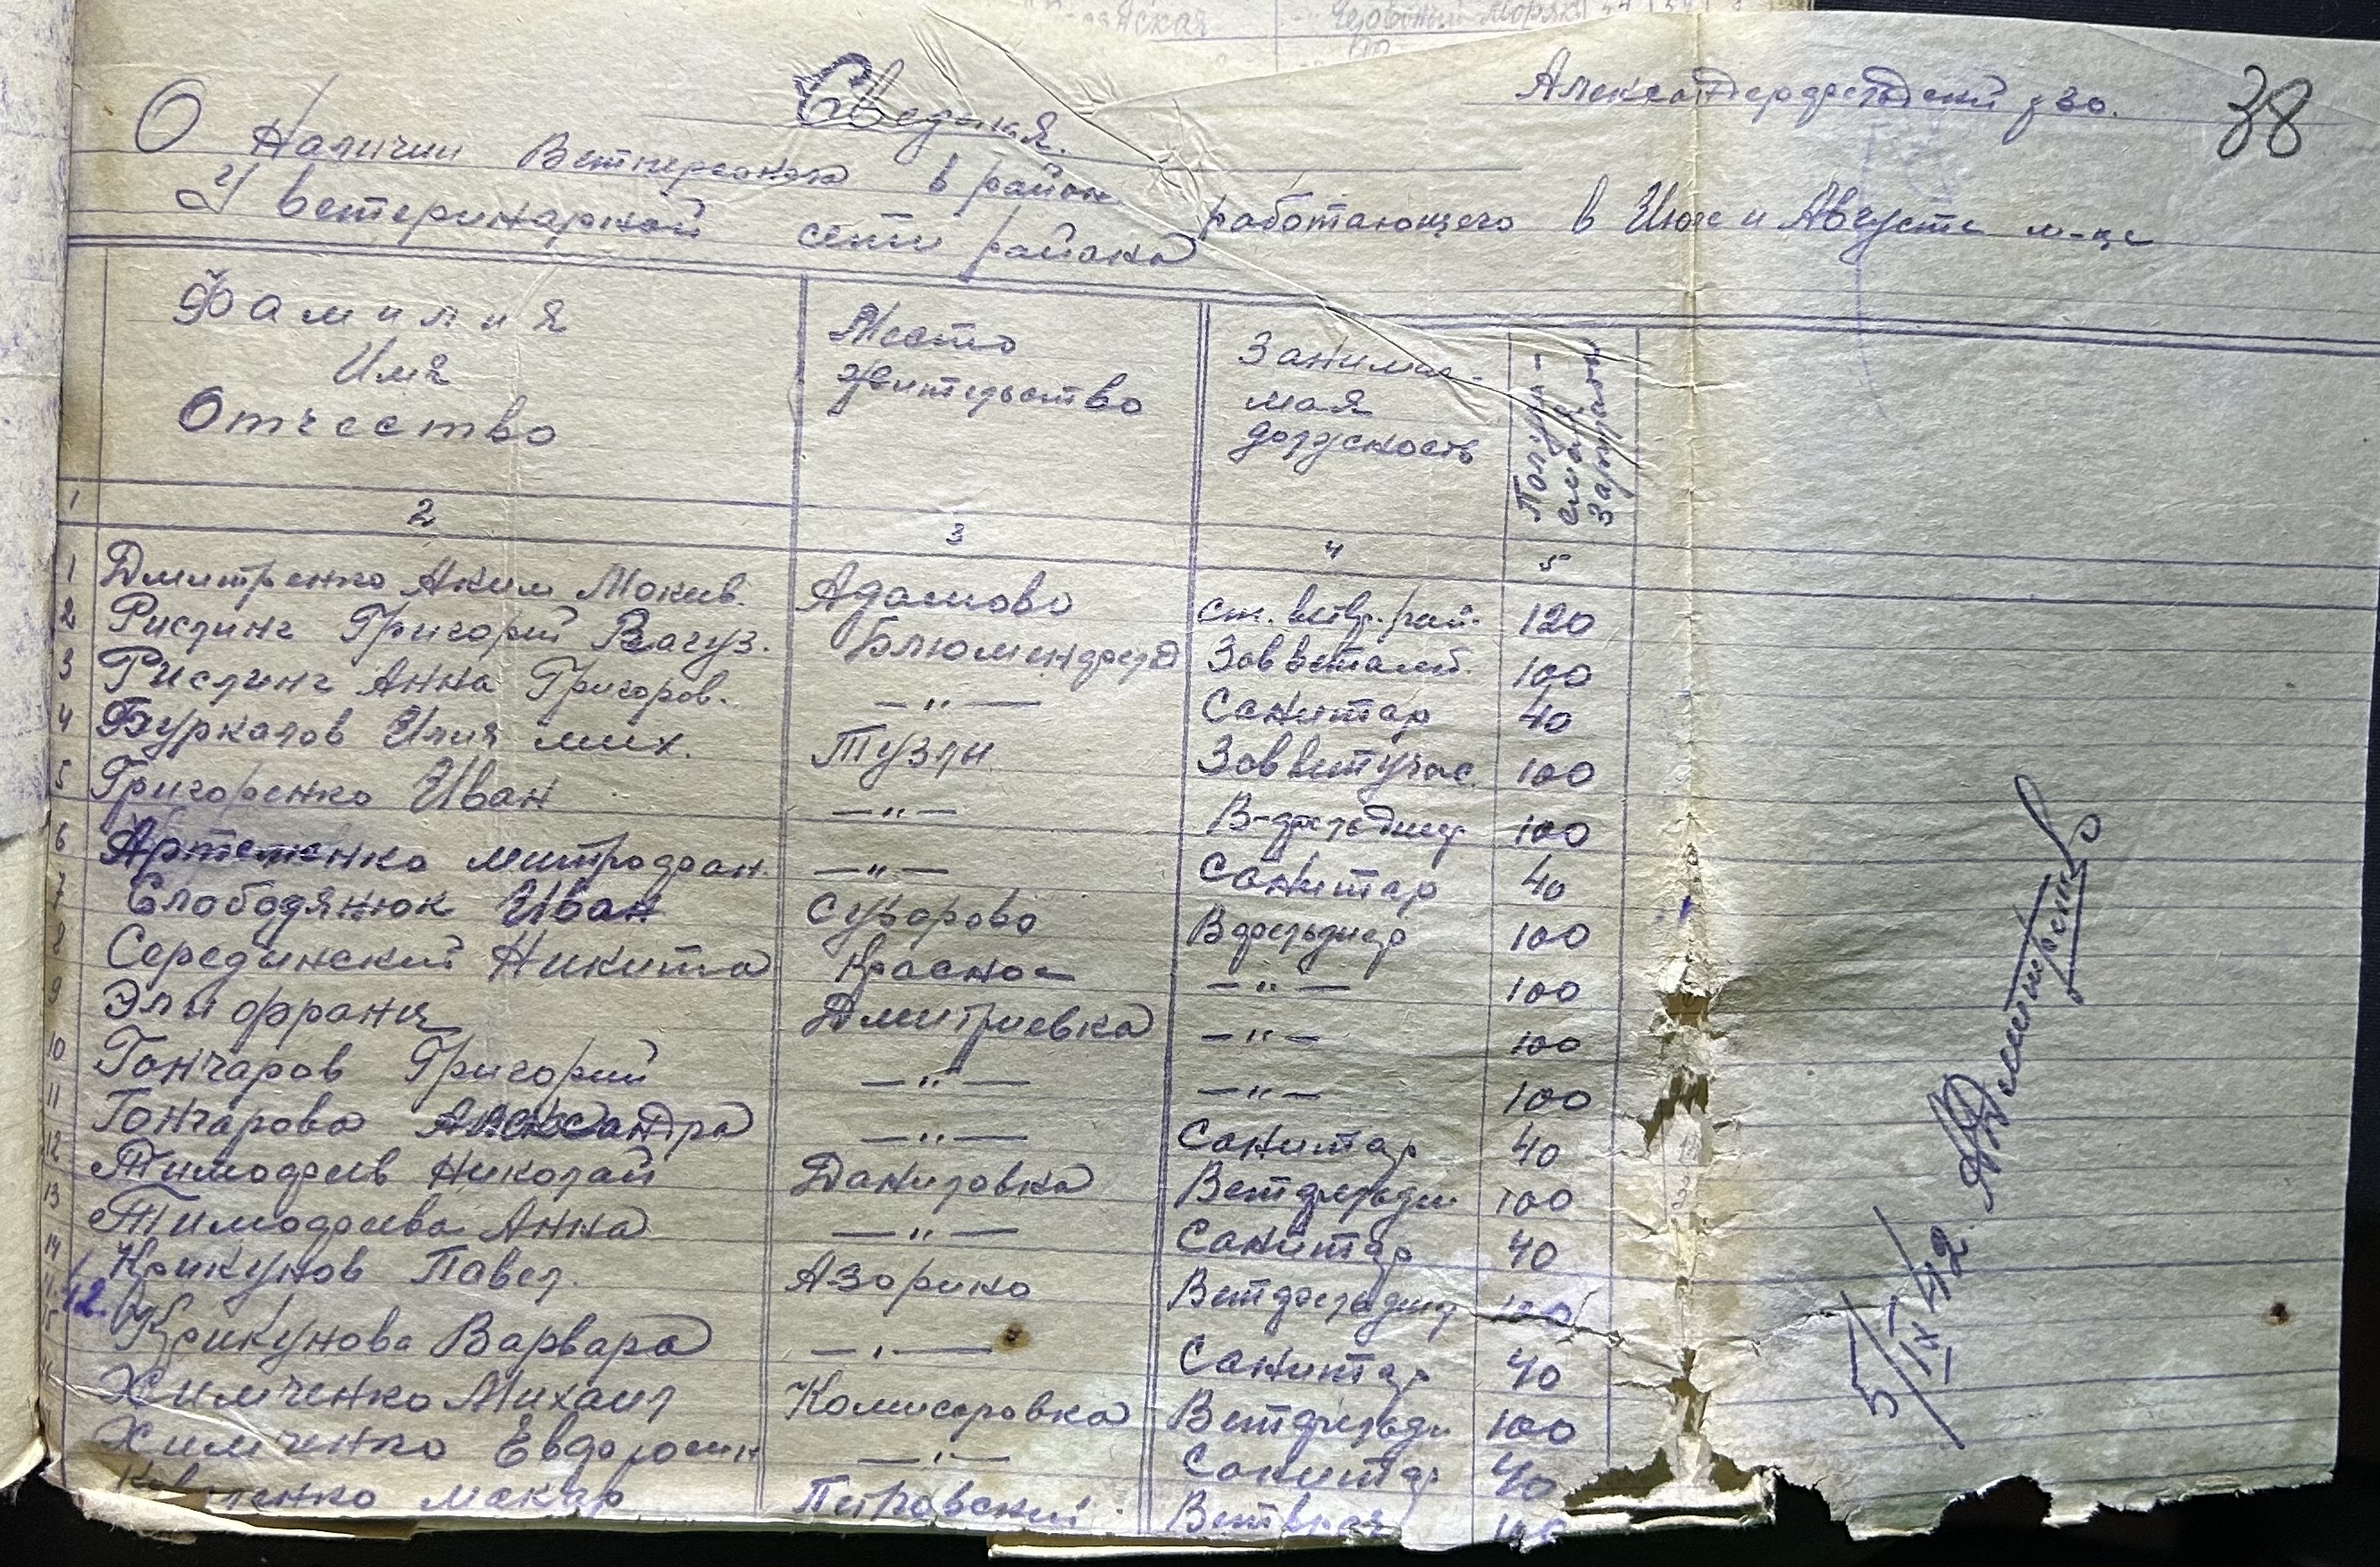 38
Александерфельдский рзо.
Сведения.
О Наличии Ветперсонала в районе работающего в Июле и Августе м-це
У ветеринарной сети района
Фамилия Имя Отчество | Место жительство | Занимаемая должность | Получаемая Зарплата
1 | 2 | 3 | 4 | 5
1 Дмитренко Аким Мокиев. | Адамово | ст. ветвр. рай. | 120
2 Рислинг Григорий | Блюменфельд | Зав ветамб. | 100
3 Рислинг Анна Григоров. | —"— | Санитар | 40
4 Буркалов Илия мих. | Тузлы | Завветучас. | 100
5 Григоренко Иван | —"— | В-фельдшер | 100
6 Артеменко митрофан. | —"— | Санитар | 40
7 Слободянюк Иван | Суворово | Вфельдшер | 100
8 Серединский Никита | Красное | —"— | 100
9 Эли франц | Дмитриевка | —"— | 100
10 Гончаров Григорий | —"— | —"— | 100
11 Гончарова Александра | —"— | Санитар | 40
12 Тимофеев Николай | Даниловка | Ветфельдш | 100
13 Тимофеева Анна | —"— | Санитар | 40
14 Крикунов Павел. | Азорико | Ветфельдшер | 100
15 Крикунова Варвара | —"— | Санитар | 40
Химченко Михаил | Комисаровка | Ветфельдш | 100
Химченко | —"— | Санитар | 40
макар | Петровский | Ветврач
5/IX 42. АДмитренко